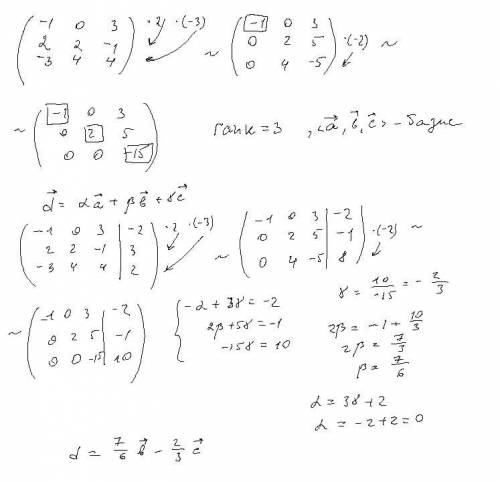 ( -1 0 3 ; 2 2 -1 ; -3 4 4 ) ·2 ·(-3) ~ ( -1 0 3 ; 0 2 5 ; 0 4 -5 ) ·(-2) ~
~ ( -1 0 3 ; 0 2 5 ; 0 0 -15 ) ранк = 3 , <a, b, c> - базис
d = αa + βb + γc
( -1 0 3 | -2 ; 2 2 -1 | 3 ; -3 4 4 | 2 ) ·2 ·(-3) ~ ( -1 0 3 | -2 ; 0 2 5 | -1 ; 0 4 -5 | 8 ) ·(-2) ~
~ ( -1 0 3 | -2 ; 0 2 5 | -1 ; 0 0 -15 | 10 )
{ -α + 3γ = -2
2β + 5γ = -1
-15γ = 10
γ = 10/-15 = -2/3
2β = -1 + 10/3
2β = 7/3
β = 7/6
α = 3γ + 2
α = -2 + 2 = 0
d = 7/6 b - 2/3 c